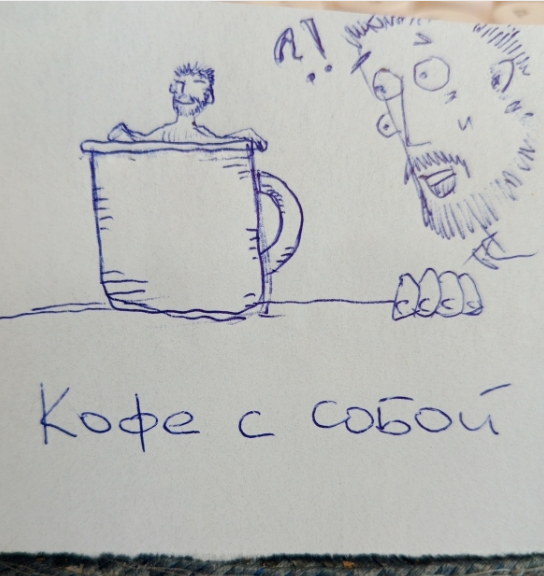 А!
Кофе с собой